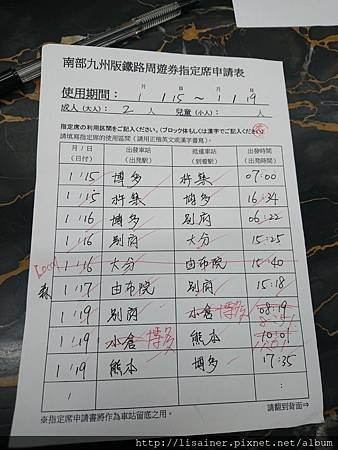 南部九州版鐵路周遊券指定席申請表
月 日 月 日
使用期間： 1 15 ～ 1 19
成人（大人）： 2 人 兒童（小人）： 人
指定席の利用区間をご記入ください。（ブロック体もしくは漢字でご記入ください）
請填寫指定席的使用區間（請用正楷英文或漢字書寫）．
月 / 日 出發車站 抵達車站 出發時間
（日付） （出発駅） （到着駅） （出発時間）
1 / 15 博多 杵築 07:00
1 / 15 杵築 博多 16:34
1 / 16 博多 別府 06:22
1 / 16 別府 大分 15:25
Local 1 / 16 大分 由布院 15:40
森 1 / 17 由布院 別府 15:18
1 / 19 別府 小倉 博多 08:19
1 / 19 小倉 博多 熊本 10:01
1 / 19 熊本 博多 17:35
/ :
※指定席申請書將作為車站留底之用。 請翻到背面⇒
http://lisainer.pixnet.net/album